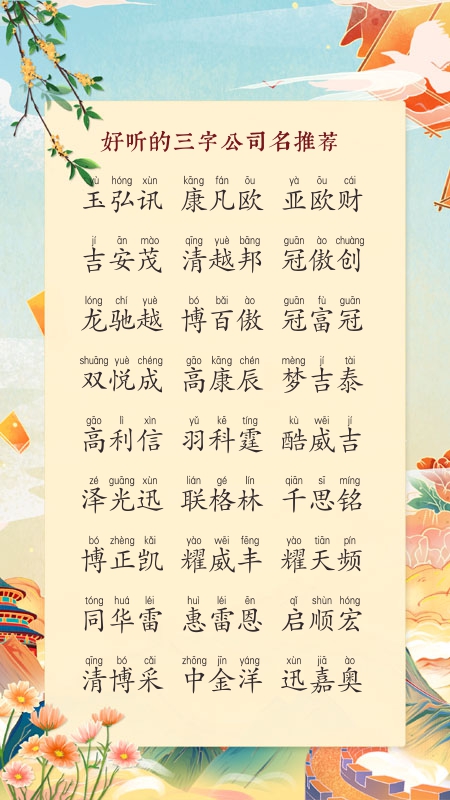 好听的三字公司名推荐
yù hóng xùn kāng fán ōu yà ōu cái
玉弘讯 康凡欧 亚欧财
jí ān mào qīng yuè bāng guān ào chuàng
吉安茂 清越邦 冠傲创
lóng chí yuè bó bǎi ào guān fù guān
龙驰越 博百傲 冠富冠
shuāng yuè chéng gāo kāng chén mèng jí tài
双悦成 高康辰 梦吉泰
gāo lì xìn yǔ kē tíng kù wēi jí
高利信 羽科霆 酷威吉
zé guāng xùn lián gé lín qiān sī míng
泽光迅 联格林 千思铭
bó zhèng kǎi yào wēi fēng yào tiān pín
博正凯 耀威丰 耀天频
tóng huá léi huì léi ēn qǐ shùn hóng
同华雷 惠雷恩 启顺宏
qīng bó cǎi zhōng jīn yáng xùn jiā ào
清博采 中金洋 迅嘉奥